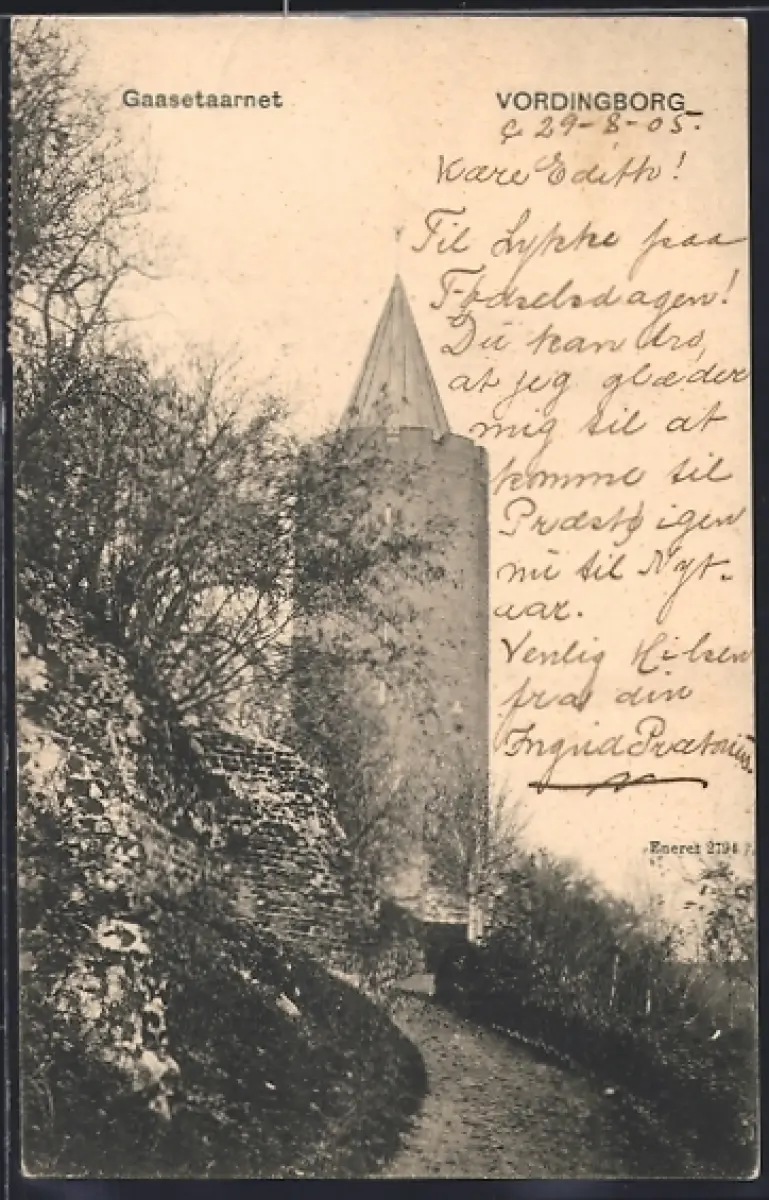 Gaasetaarnet
VORDINGBORG
d. 29-8-05.
Kære Edith!
Til Lykke paa
Fødselsdagen!
Du kan tro,
at jeg glæder
mig til at
komme til
Præstø igen
nu til Nyt-
aar.
Venlig Hilsen
fra din
Ingrid Prætorius.
Eneret 2794